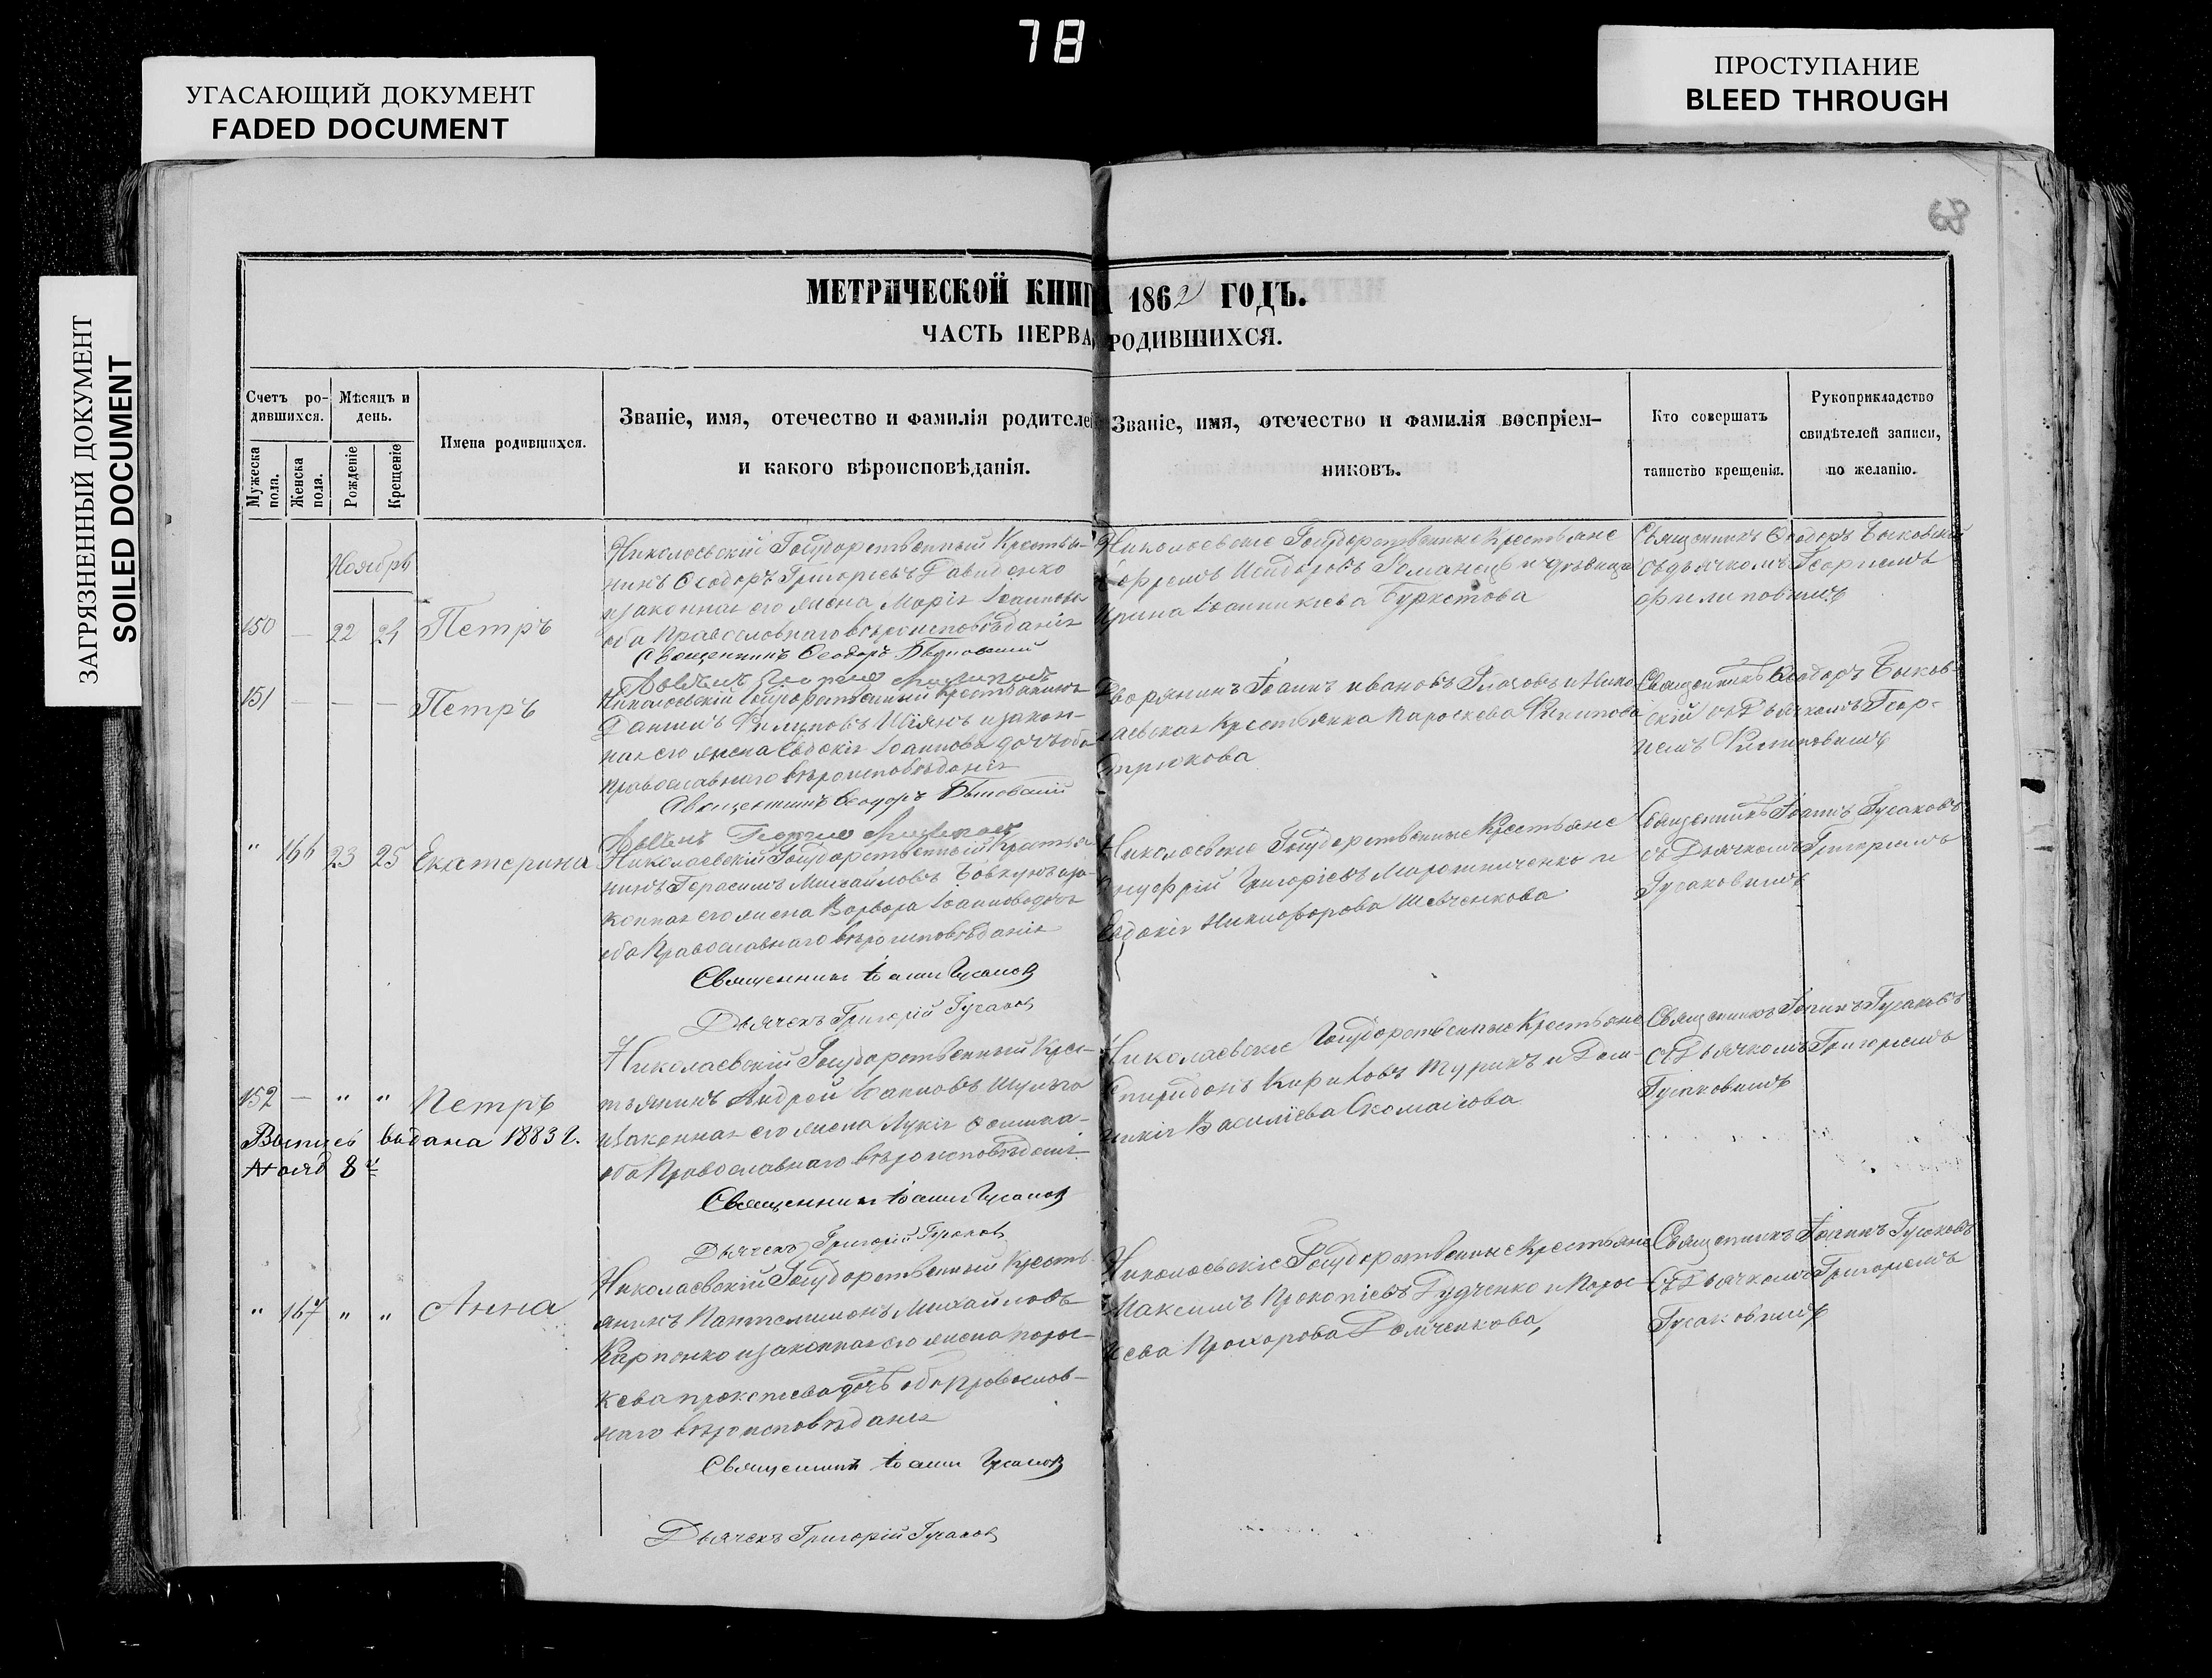 78
УГАСАЮЩИЙ ДОКУМЕНТ
FADED DOCUMENT
ПРОСТУПАНИЕ
BLEED THROUGH
ЗАГРЯЗНЕННЫЙ ДОКУМЕНТ
SOILED DOCUMENT
МЕТРИЧЕСКОЙ КНИГ 1862 ГОДЪ.
ЧАСТЬ ПЕРВА РОДИВШИХСЯ.
Счетъ ро-
дившихся.
Мужеска
пола.
Женска
пола.
Мѣсяцъ и
день.
Рожденіе
Крещеніе
Имена родившихся.
Званіе, имя, отечество и фамилія родителей
и какого вѣроисповѣданія.
Званіе, имя, отечество и фамилія воспріем-
никовъ.
Кто совершатъ
таинство крещенія.
Рукоприкладство
свидѣтелей записи,
по желанію.
Ноябрь
150 — 22 24 Петръ
Николаевскій Государственный Крестья-
нинъ Ѳеодоръ Григорьевъ Давиденко
и законная его жена Марія Іоаннова
оба Православнаго вѣроисповѣданія
Священникъ Ѳеодоръ Быковскій
Николаевскіе Государственные Крестьяне
Ефремъ Исидоровъ Романецъ и дѣвица
Ирина Іоанникіева
Священникъ Ѳеодоръ Быковскій
съ дьячкомъ Георгіемъ
Филиповымъ
151 — — — Петръ
Николаевскій Государственный Крестьянинъ
Даніилъ Филиповъ и закон-
ная его жена Евдокія Іоаннова дочь оба
православнаго вѣроисповѣданія
Священникъ Ѳеодоръ Быковскій
Дворянинъ Іоаннъ Ивановъ и Нико
лаевская Крестьянка Параскева Филипова
Священникъ Ѳеодоръ Быков-
скій съ Дьячкомъ Геор-
гіемъ Филиповымъ
" 166 23 25 Екатерина
Николаевскій Государственный Крестья
нинъ Герасимъ Михайловъ Бовкунъ и за-
конная его жена Варвара Іоаннова дочь
оба Православнаго вѣроисповѣданія
Священникъ Іоаннъ Гусаковъ
Дьячекъ Григорій Гусаковъ
Николаевскіе Государственные Крестьяне
Онуфрій Григорьевъ Мирошниченко и
Евдокія Никифорова Шевченкова
Священникъ Іоаннъ Гусаковъ
съ Дьячкомъ Григоріемъ
Гусаковымъ
152 — " " Петръ
Выпись выдана 1883 г.
Николаевскій Государственный Крес-
тьянинъ Андрей Іоанновъ Шульга
и законная его жена Лукія
оба Православнаго вѣроисповѣданія
Священникъ Іоаннъ Гусаковъ
Дьячекъ Григорій Гусаковъ
Николаевскіе Государственные Крестьяне
Спиридонъ Кириловъ Турикъ и Дом-
никія Василіева
Священникъ Іоаннъ Гусаковъ
съ Дьячкомъ Григоріемъ
Гусаковымъ
" 167 " " Анна
Николаевскій Государственный Кресть-
янинъ Пантелеимонъ Михайловъ
Карпенко и законная его жена Парас-
кева Прокопіева дочь оба Православ-
наго вѣроисповѣданія
Священникъ Іоаннъ Гусаковъ
Дьячекъ Григорій Гусаковъ
Николаевскіе Государственные Крестьяне
Максимъ Прокопіевъ Дудченко и Парас-
кева Прохорова Демченкова,
Священникъ Іоаннъ Гусаковъ
съ Дьячкомъ Григоріемъ
Гусаковымъ